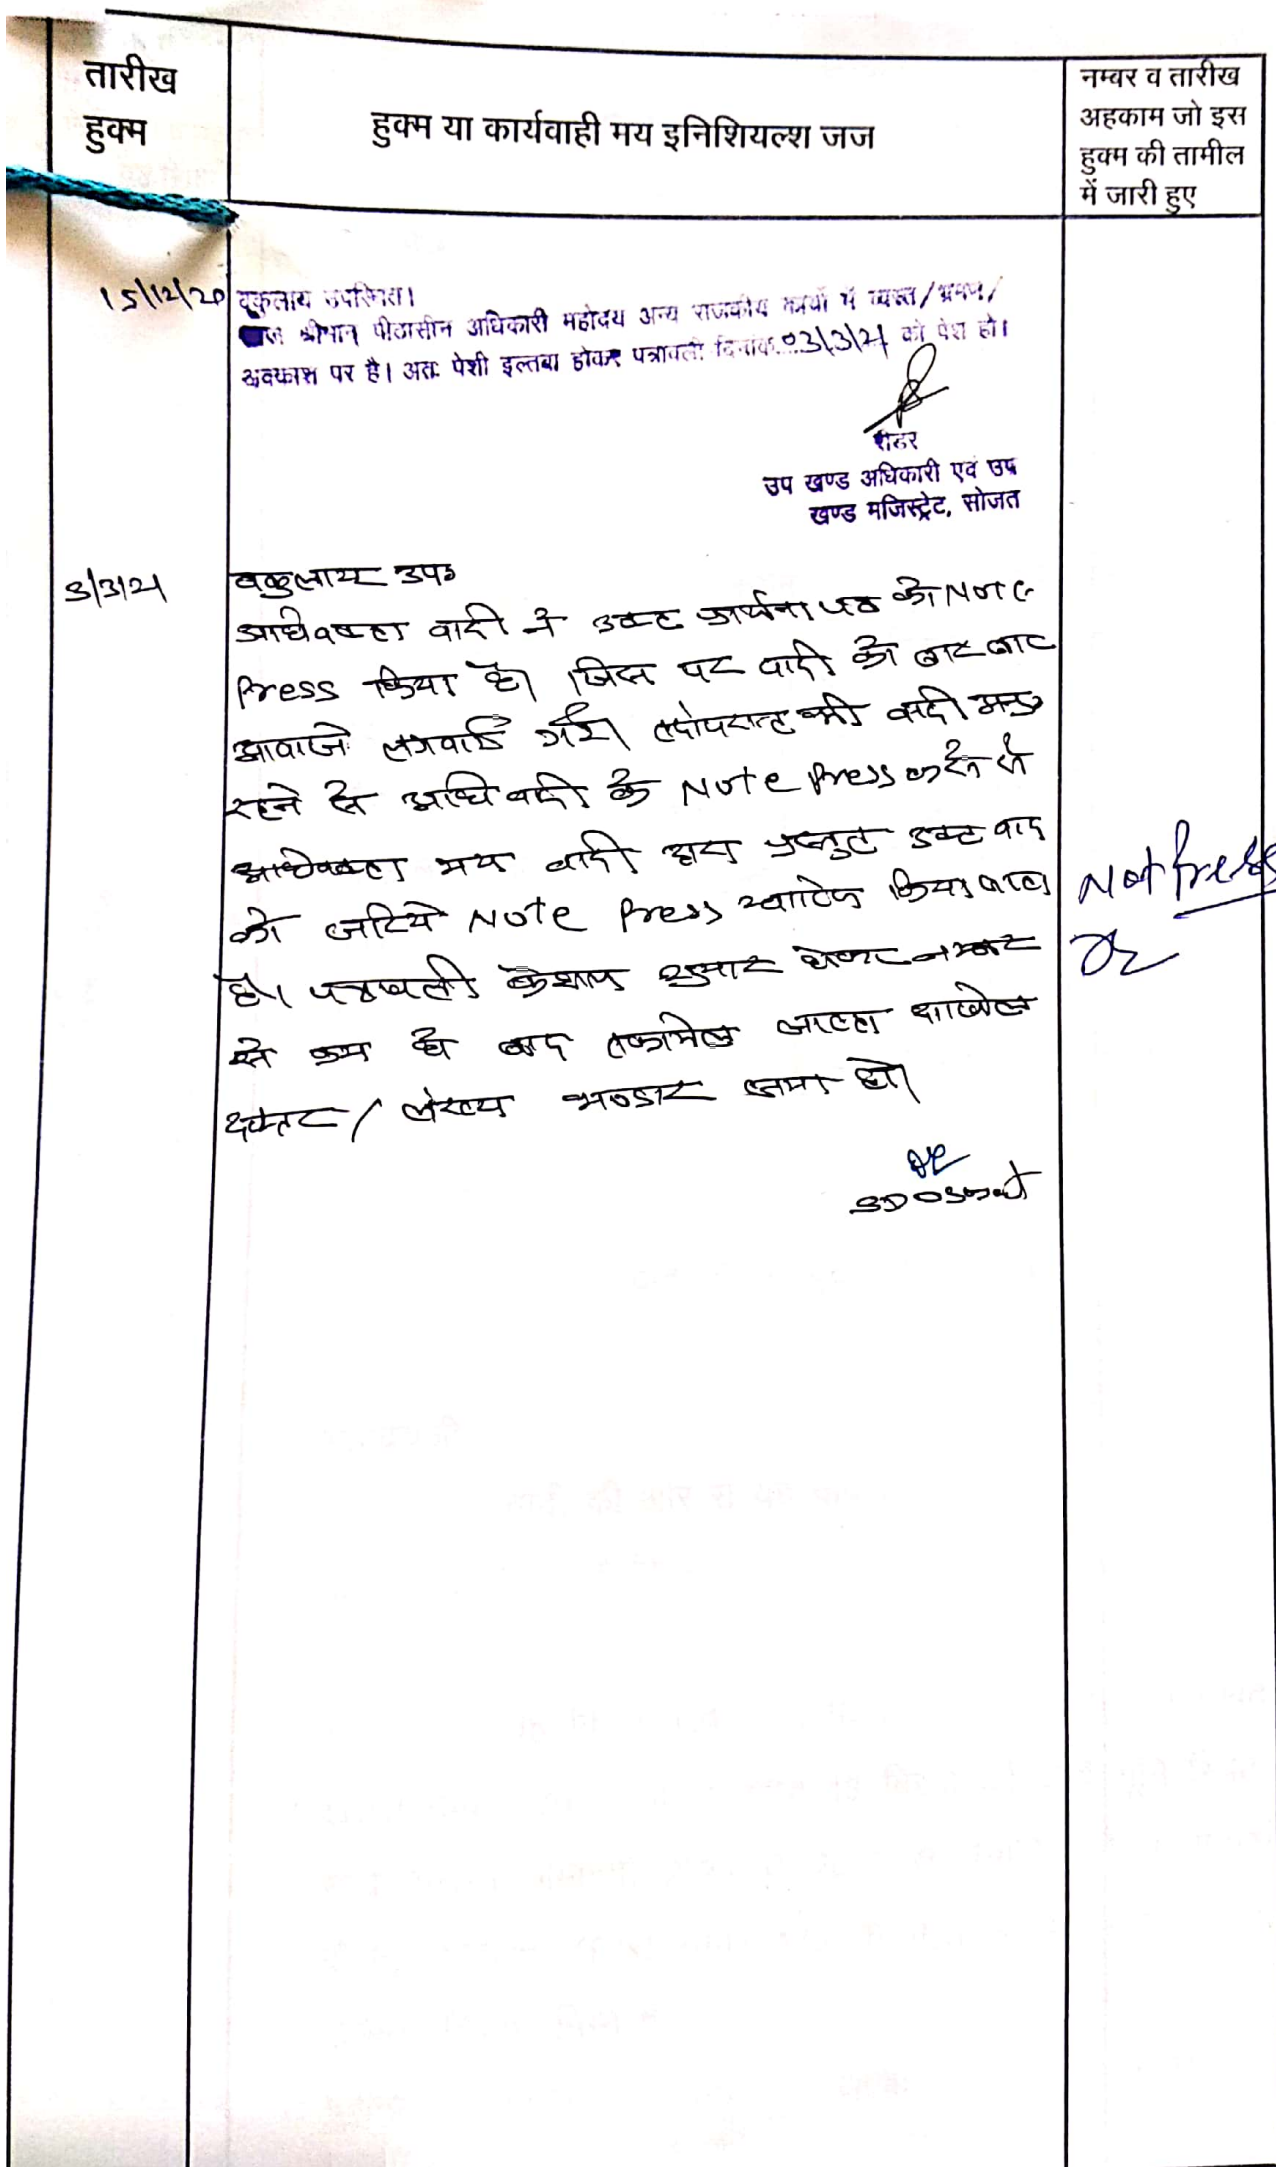 तारीख
हुक्म
हुक्म या कार्यवाही मय इनिशियल्श जज
नम्बर व तारीख
अहकाम जो इस
हुक्म की तामील
में जारी हुए
15/12/20 वकुलाय उपस्थित।
श्रीमान् पीठासीन अधिकारी महोदय अन्य राजकीय कार्यो में व्यस्त/भ्रमण/
अवकाश पर है। अतः पेशी इल्तबा होकर पत्रावली दिनांक..03/3/21 को पेश हो।
रीडर
उप खण्ड अधिकारी एवं उप
खण्ड मजिस्ट्रेट, सोजत
3/3/21 वकुलाय उप०
अधिवक्ता वादी ने उक्त प्रार्थना पत्र को Note
Press किया है। जिस पर वादी को बार बार
आवाजे लगवाई गई। तदोपरान्त भी वादी
रहने से अधि वादी के Note Press करने से
अधिवक्ता मय वादी द्वारा प्रस्तुत उक्त वाद
को जरिये Note Press खारिज किया जाता
है। पत्रावली फैशल शुमार होकर नम्बर
से कम हो बाद तकमील जाब्ता दाखिल
दफ्तर/ लेख्य भण्डार जमा हो।
SDO Sojat
Not Press